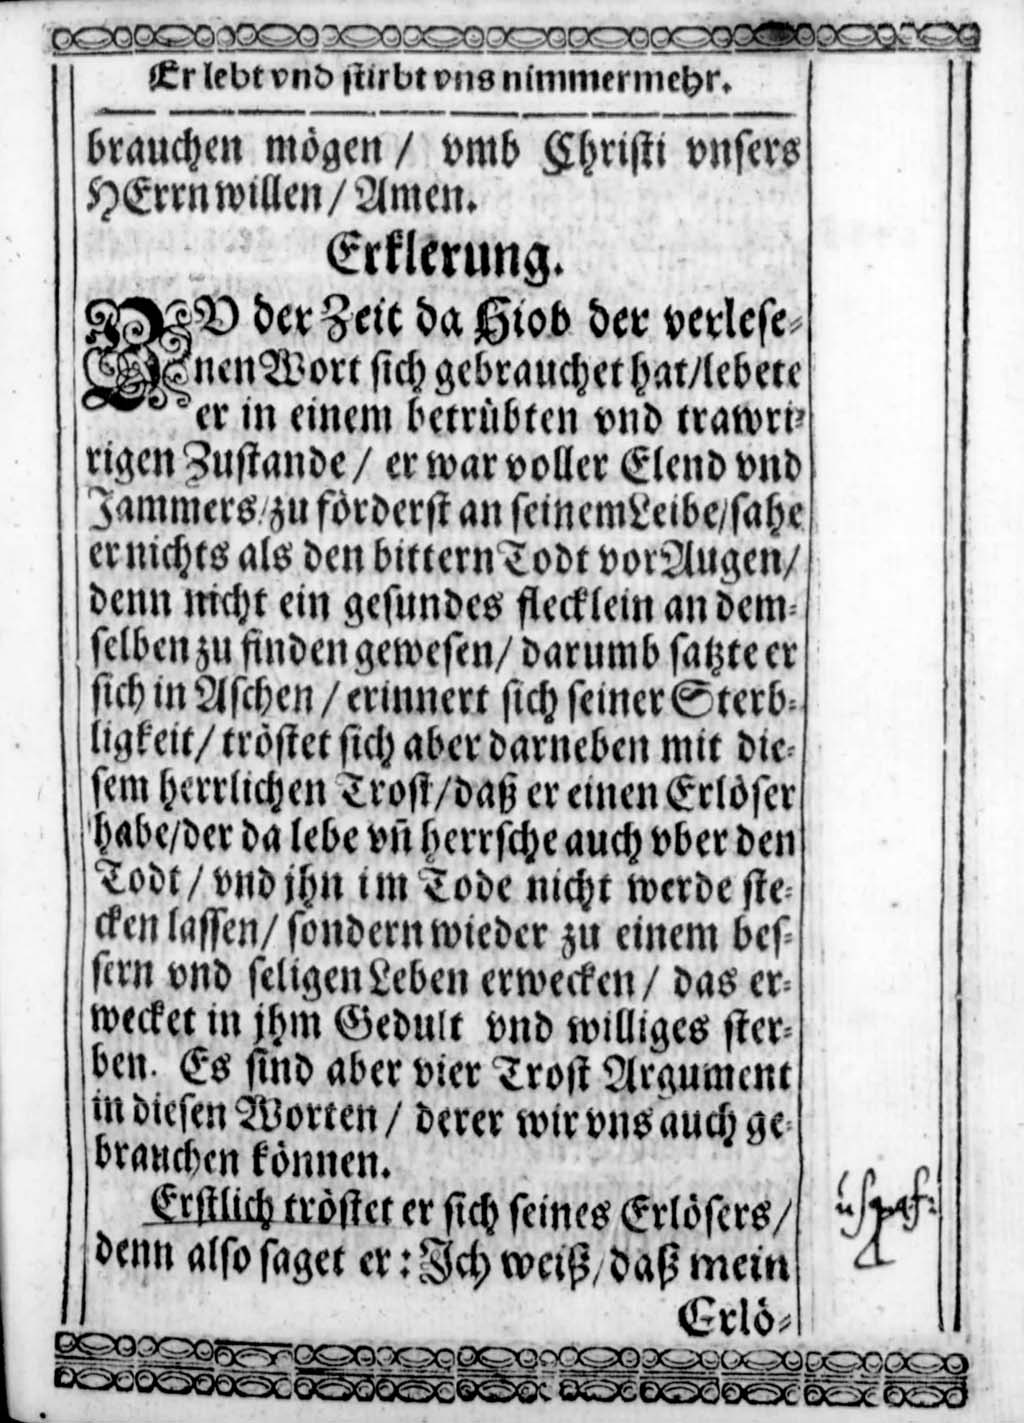 Er lebt vnd stirbt vns nimmermehr.
brauchen mögen / vmb Christi vnsers
HErrn willen / Amen.
Erklerung.
ZV der Zeit da Hiob der verlese-
nen Wort sich gebrauchet hat / lebete
er in einem betrübten vnd trawri-
rigen Zustande / er war voller Elend vnd
Jammers / zu förderst an seinem Leibe / sahe
er nichts als den bittern Todt vor Augen /
denn nicht ein gesundes flecklein an dem-
selben zu finden gewesen / darumb satzte er
sich in Aschen / erinnert sich seiner Sterb-
ligkeit / tröstet sich aber darneben mit die-
sem herrlichen Trost / daß er einen Erlöser
habe / der da lebe vñ herrsche auch vber den
Todt / vnd jhn im Tode nicht werde ste-
cken lassen / sondern wieder zu einem bes-
sern vnd seligen Leben erwecken / das er-
wecket in jhm Gedult vnd williges ster-
ben. Es sind aber vier Trost Argument
in diesen Worten / derer wir vns auch ge-
brauchen können.
Erstlich tröstet er sich seines Erlösers /
denn also saget er : Jch weiß / daß mein
Erlö-